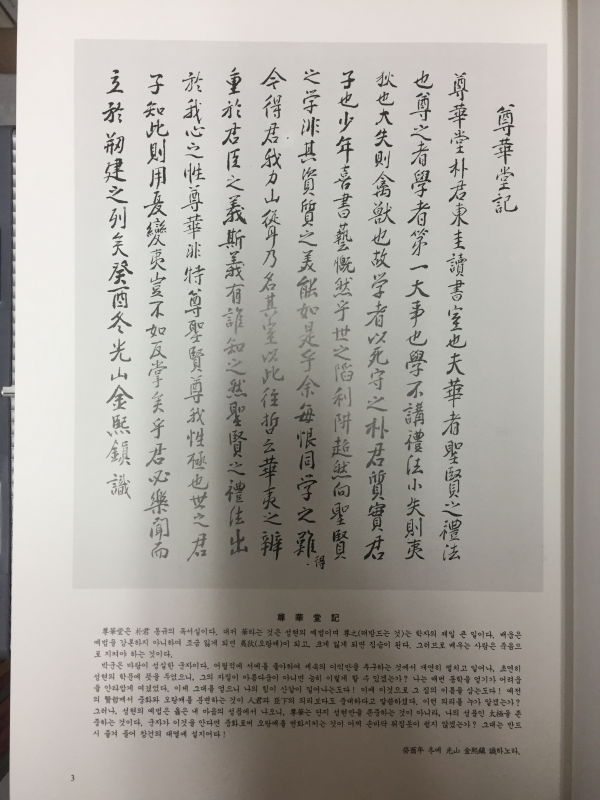 尊華堂記
尊華堂朴君東圭讀書室也夫華者聖賢之禮法
也尊之者學者第一大事也學不講禮法小失則夷
狄也大失則禽獸也故学者以死守之朴君質實君
子也少年喜書藝慨然乎世之陷利阱超然向聖賢
之学非其資質之美能如是乎余每恨同学之難得
今得君我力山聳乃名其室以此往哲云華夷之辨
重於君臣之義斯義有誰知之然聖賢之禮法出
於我心之性尊華非特尊聖賢尊我性極也世之君
子知此則用夏變夷豈不如反掌矣乎君必樂聞而
立於刱建之列矣癸酉冬光山金熙鎭識
尊華堂記
尊華堂은 朴君 동규의 독서실이다. 대저 華라는 것은 성현의 예법이며 尊之(떠받드는 것)는 학자의 제일 큰 일이다. 배움은
예법을 강론하지 아니하여 조금 잃게 되면 夷狄(오랑캐)이 되고, 크게 잃게 되면 짐승이 된다. 그러므로 배우는 사람은 죽음으
로 지켜야 하는 것이다.
박군은 바탕이 성실한 군자이다. 어릴적에 서예를 좋아하여 세속의 이익만을 추구하는 것에서 개연히 떨치고 일어나, 초연히
성현의 학문에 뜻을 두었으니, 그의 자질이 아름다움이 아니면 능히 이렇게 할 수 있겠는가? 나는 매번 동학을 얻기가 어려움
을 안타깝게 여겼었다. 이제 그대를 얻으니 나의 힘이 산같이 일어나는도다! 이에 이것으로 그 집의 이름을 삼는도다! 예전
의 賢哲께서 중화와 오랑캐를 분변하는 것이 人君과 臣下의 의리보다도 중대하다고 말씀하셨다. 이런 의리를 누가 알겠는가?
그러나, 성현의 예법은 옳은 내 마음의 성품에서 나오니, 尊華는 단지 성현만을 존중하는 것이 아니라, 나의 성품인 太極을 존
중하는 것이다. 군자가 이것을 안다면 중화로써 오랑캐를 변화시키는 것이 어찌 손바닥 뒤집듯이 쉽지 않겠는가? 그대는 반드
시 즐겨 들어 창건의 대열에 설지어다!
癸酉年 冬에 光山 金熙鎭 識하노라.
3